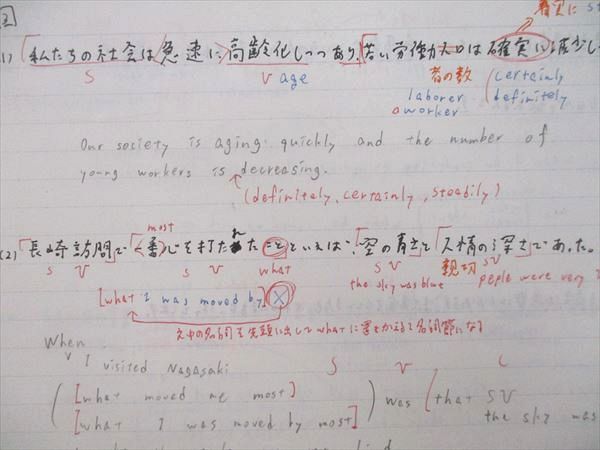 着実に st
1) 「私たちの社会は急速に高齢化しつつあり、若い労働力人口は確実に減少し
S V age 者の数 certainly
laborer definitely
worker
Our society is aging quickly and the number of
young workers is decreasing.
(definitely, certainly, steadily)
most
(2) 「長崎訪問で一番心を打たれたことといえば、「空の青さ」と「人情の深さ」であった。
S V S V what S V 親切 SV
the sky was blue peple were very
[what I was moved by]
When
I visited Nagasaki S V C
[what moved me most] was [that SV
[what I was moved by most] the sky was